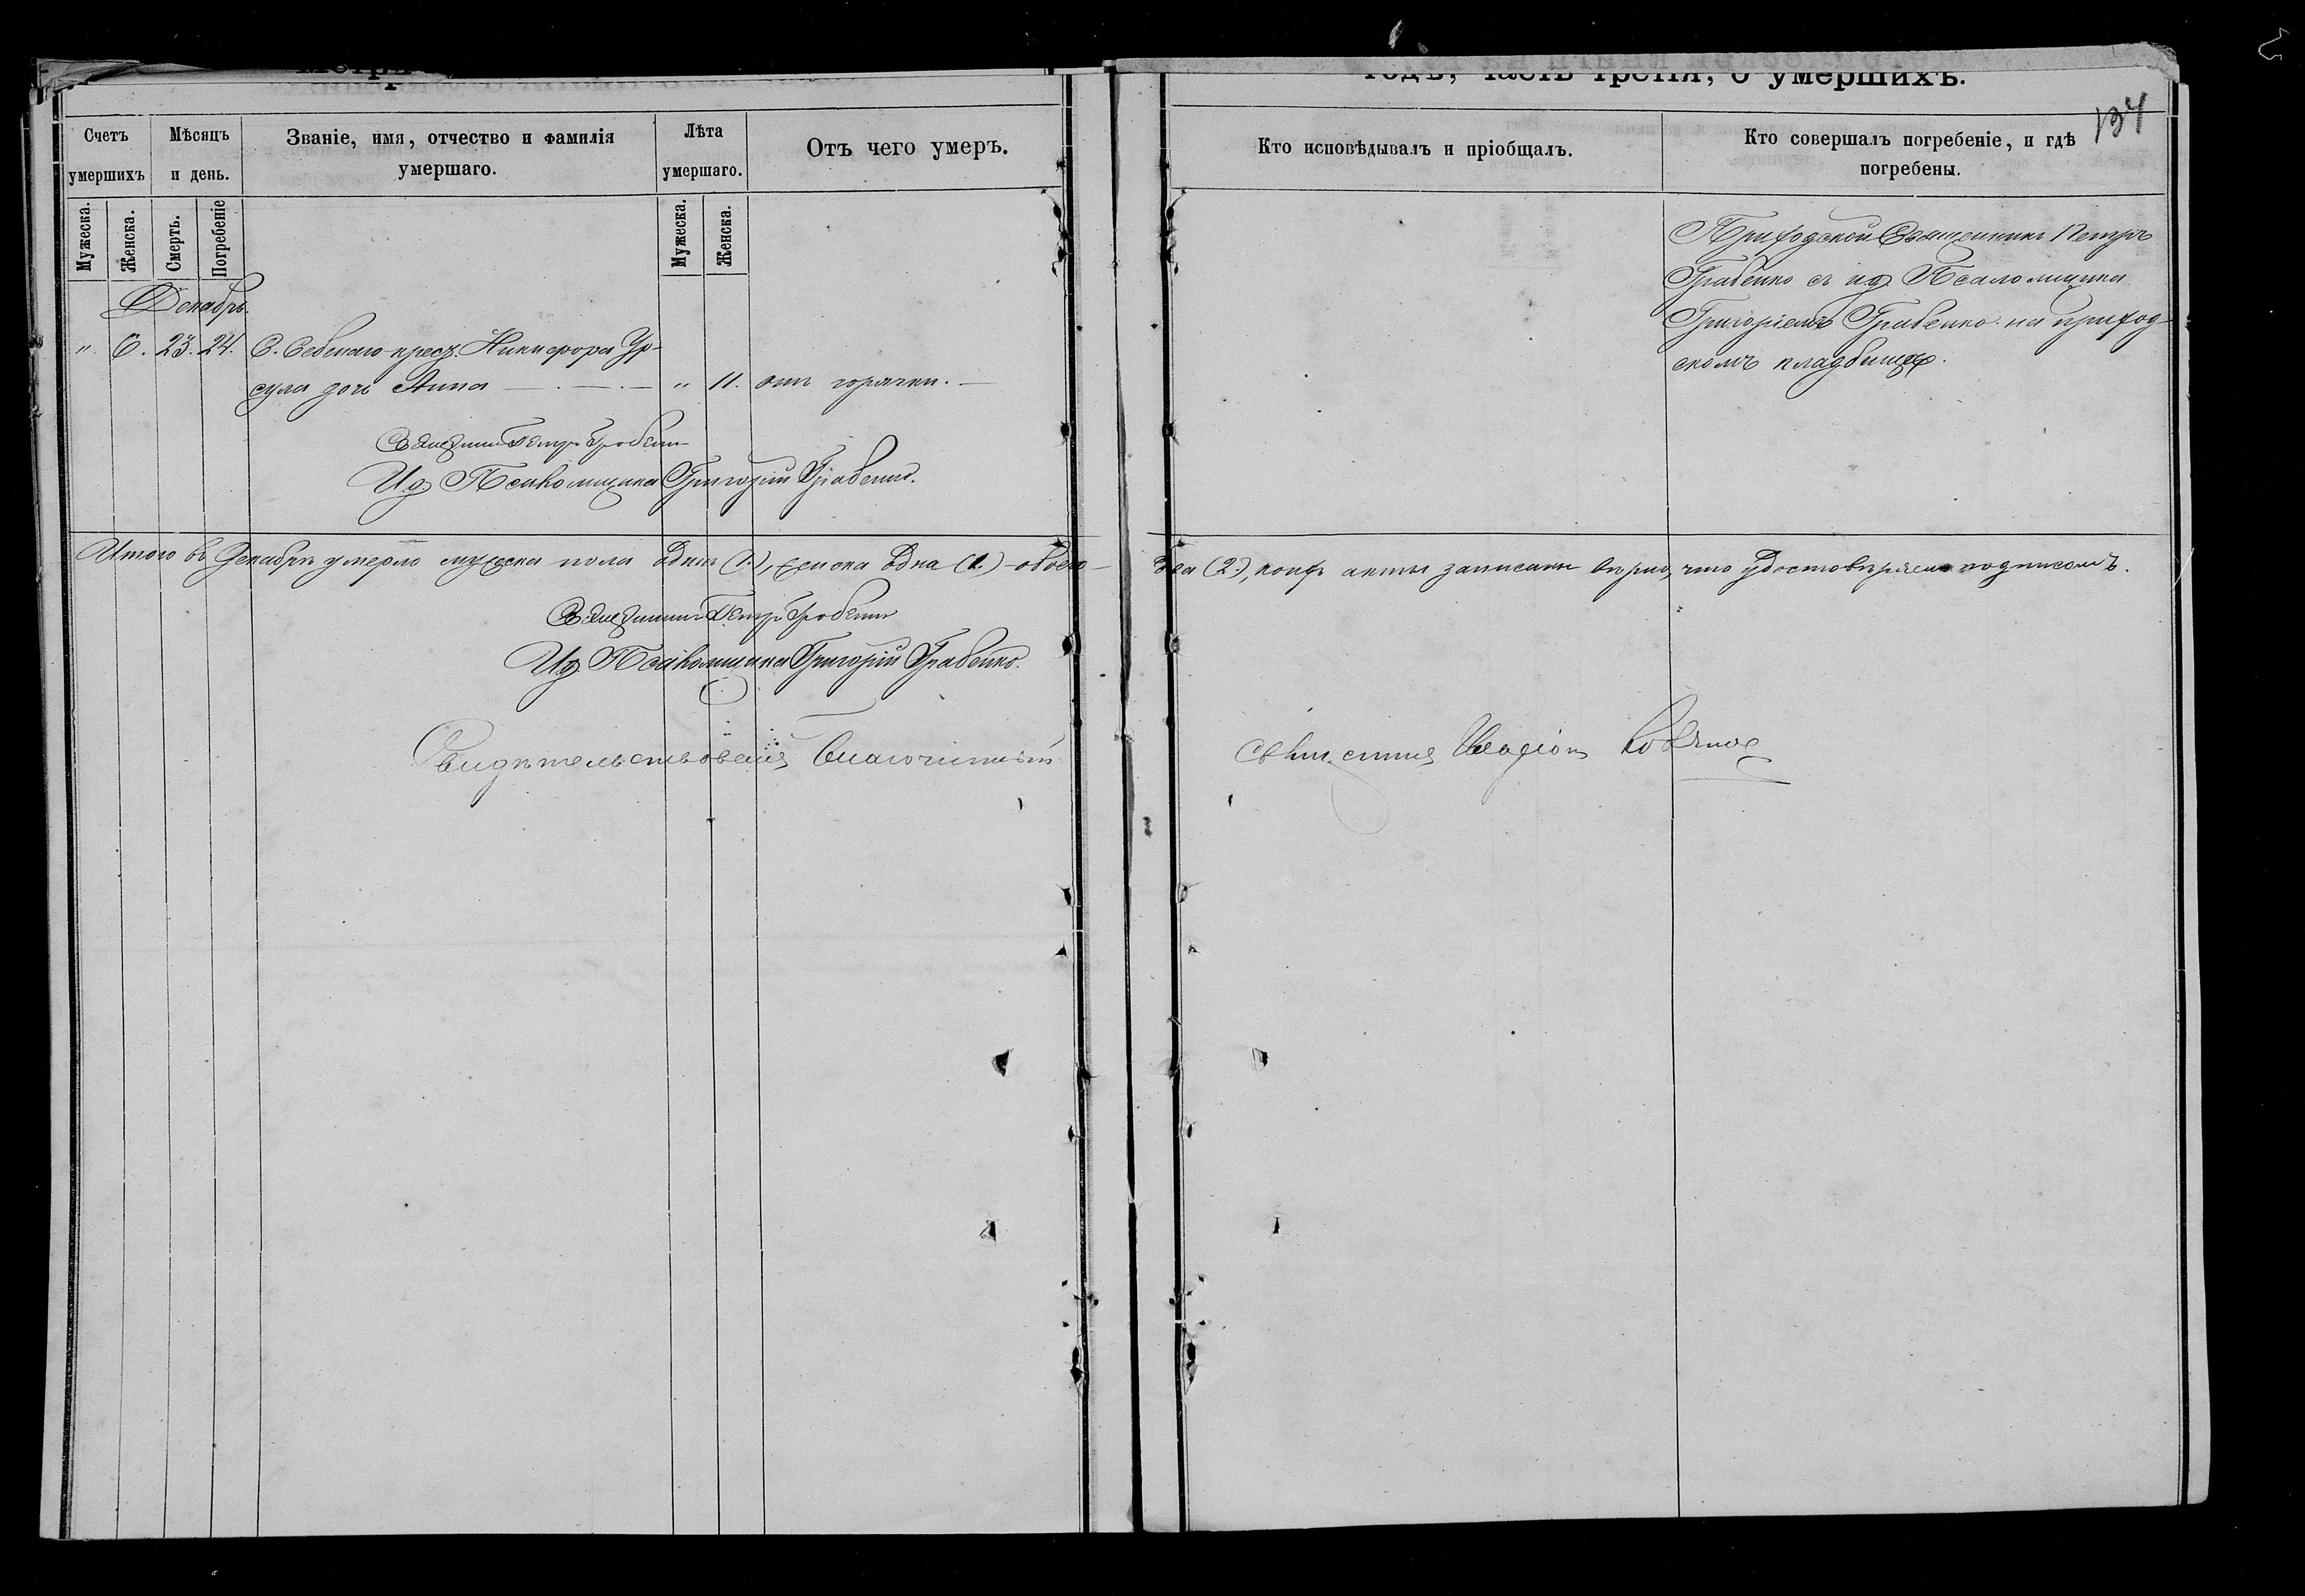 годъ, часть третія, о умершихъ.
134
Счетъ умершихъ
Мѣсяцъ и день.
Званіе, имя, отчество и фамилія умершаго.
Лѣта умершаго.
Отъ чего умеръ.
Кто исповѣдывалъ и пріобщалъ.
Кто совершалъ погребеніе, и гдѣ погребены.
Мужеска.
Женска.
Смерть.
Погребеніе
Мужеска.
Женска.
Декабрь.
" 6. 23. 24. С. Себенаго крест. Никифора Ур-
сула дочь Анна " 11. отъ горячки.
Приходской Священникъ Петръ
Грабенко съ и.д. Псаломщика
Григоріемъ Грабенко на приход-
скомъ кладбищѣ.
Священникъ Петръ Грабенко
И.д. Псаломщика Григорій Грабенко.
Итого въ Декабрѣ умерло мужеска пола одинъ (1.), женска одна (1.) обоего
два (2.), коихъ акты записаны вѣрно, что удостовѣряемъ подписомъ.
Священникъ Петръ Грабенко
И.д. Псаломщика Григорій Грабенко.
Свидѣтельствовалъ Благочинный
священникъ